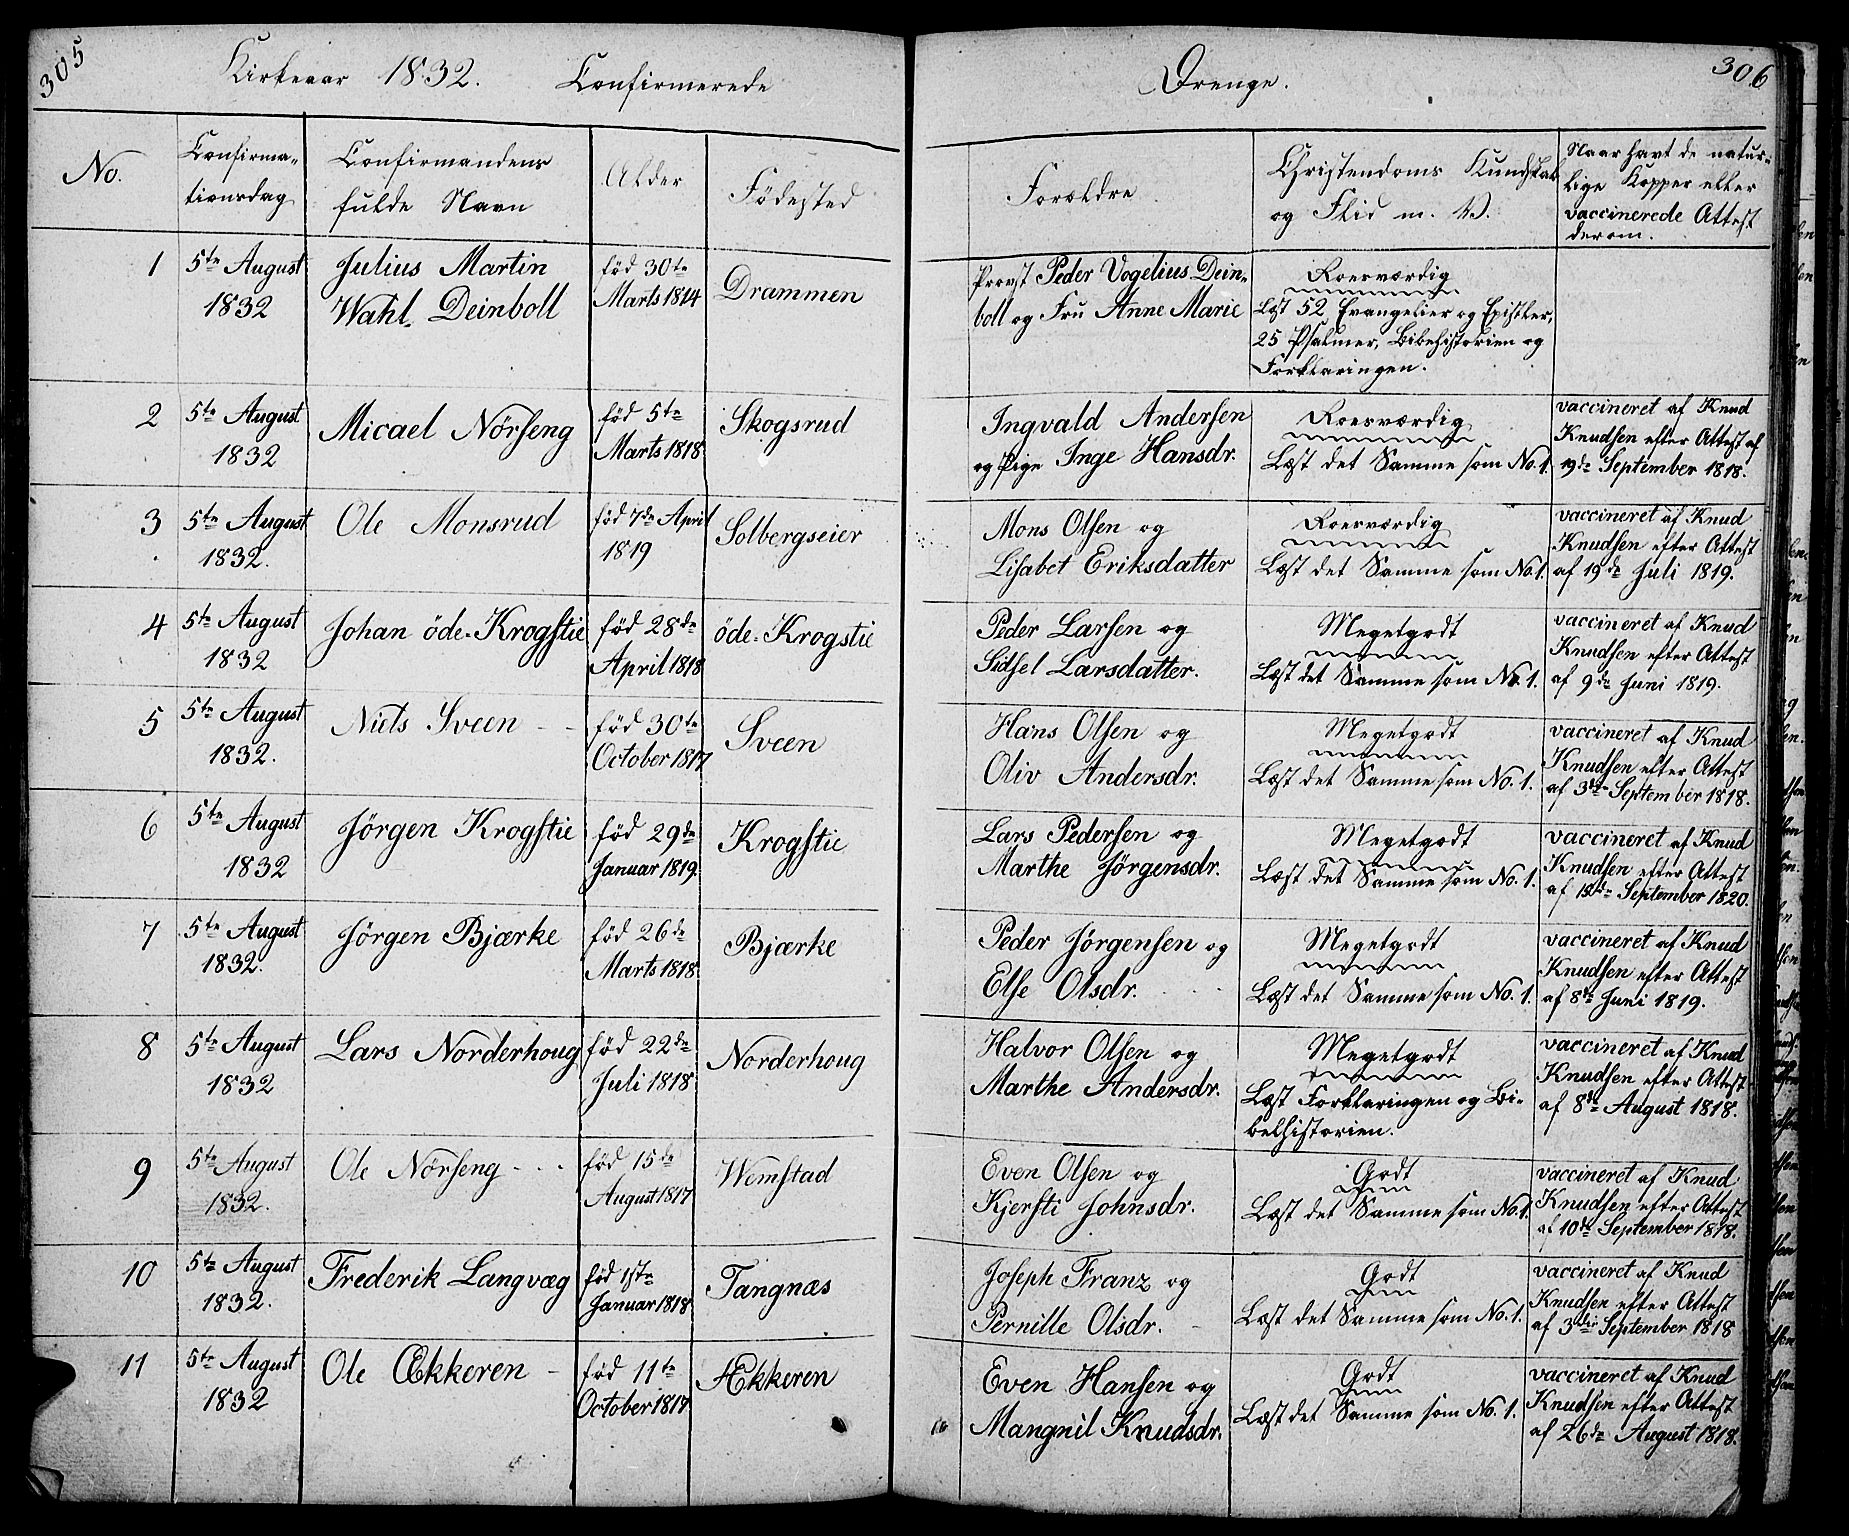 305
Kirkeaar 1832. Confirmerede
Drenge.
306
No.
Confirma-
tionsdag
Confirmandens
fulde Navn
Alder
Födested
Forældre
Christendoms Kundskab
og Flid m. V.
Naar havt de natur-
lige Kopper eller
vaccinerede Attest
derom.
1
5te August
1832
Julius Martin
Wahl Deinboll
föd 30te
Marts 1814
Drammen
Provst Peder Vogelius Dein-
boll og Fru Anne Marie
Roesværdig
Læst 52 Evangelier og Epistler,
25 Psalmer, Bibelhistorien og
Forklaringen.
2
5te August
1832
Micael Nörseng
föd 5te
Marts 1818
Skogsrud
Ingvald Andersen
og Pige Inge Hansdr.
Roesværdig
Læst det Samme som No. 1.
vaccineret af Knud
Knudsen efter Attest af
19de September 1818.
3
5te August
1832.
Ole Monsrud
föd 7de April
1819
Solbergseier
Mons Olsen og
Lisabet Eriksdatter
Roesværdig
Læst det Samme som No. 1.
vaccineret af Knud
Knudsen efter Attest
af 19de Juli 1819.
4
5te August
1832
Johan öde-Krogstie
föd 28de
April 1818
öde-Krogstie
Peder Larsen og
Sidsel Larsdatter.
Megetgodt
Læst det Samme som No 1.
vaccineret af Knud
Knudsen efter Attest
af 9de Juni 1819.
5
5te August
1832.
Niels Sveen - -
föd 30te
October 1817
Sveen
Hans Olsen og
Oliv Andersdr.
Megetgodt
Læst det Samme som No. 1.
vaccineret af Knud
Knudsen efter Attest
af 3de September 1818.
6
5te August
1832
Jörgen Krogstie
föd 29de
Januar 1819.
Krogstie
Lars Pedersen og
Marthe Jörgensdr.
Megetgodt
Læst det Samme som No. 1.
vaccineret af Knud
Knudsen efter Attest
af September 1820.
7
5te August
1832.
Jörgen Bjærke
föd 26de
Marts 1818.
Bjærke
Peder Jörgensen og
Else Olsdr.
Megetgodt
Læst det Samme som No. 1.
vaccineret af Knud
Knudsen efter Attest
af 8de Juni 1819.
8
5te August
1832
Lars Norderhoug
föd 22de
Juli 1818
Norderhoug
Halvor Olsen og
Marthe Andersdr.
Megetgodt
Læst Forklaringen og Bi-
belhistorien.
vaccineret af Knud
Knudsen efter Attest
af 8de August 1818.
9
5te August
1832.
Ole Nörseng - - -
föd 15de
August 1817
Wemstad
Even Olsen og
Kjersti Johnsdr.
Godt
Læst det Samme som No. 1.
vaccineret af Knud
Knudsen efter Attest
af 10de September 1818.
10
5te August
1832.
Frederik Langvæg
föd 1ste
Januar 1818
Tangnæs
Joseph Franz og
Pernille Olsdr. -
Godt
Læst det Samme som No. 1.
vaccineret af Knud
Knudsen efter Attest
af 3die September 1818
11
5te August
1832
Ole Ækkeren -
föd 11te
October 1817
Ækkeren
Even Hansen og
Mangnil Knudsdr.
Godt
Læst det Samme som No. 1.
vaccineret af Knud
Knudsen efter Attest
af 26de August 1818.